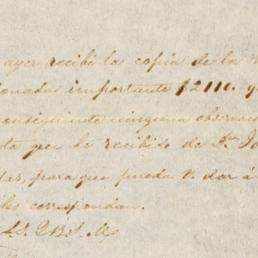 ayer recibi las copias de la
ionadas importante $2110. q
consiguiente ninguna observac
ta que he recibido de Dn. Jo
para que pueda V. dar á
les correspondan.